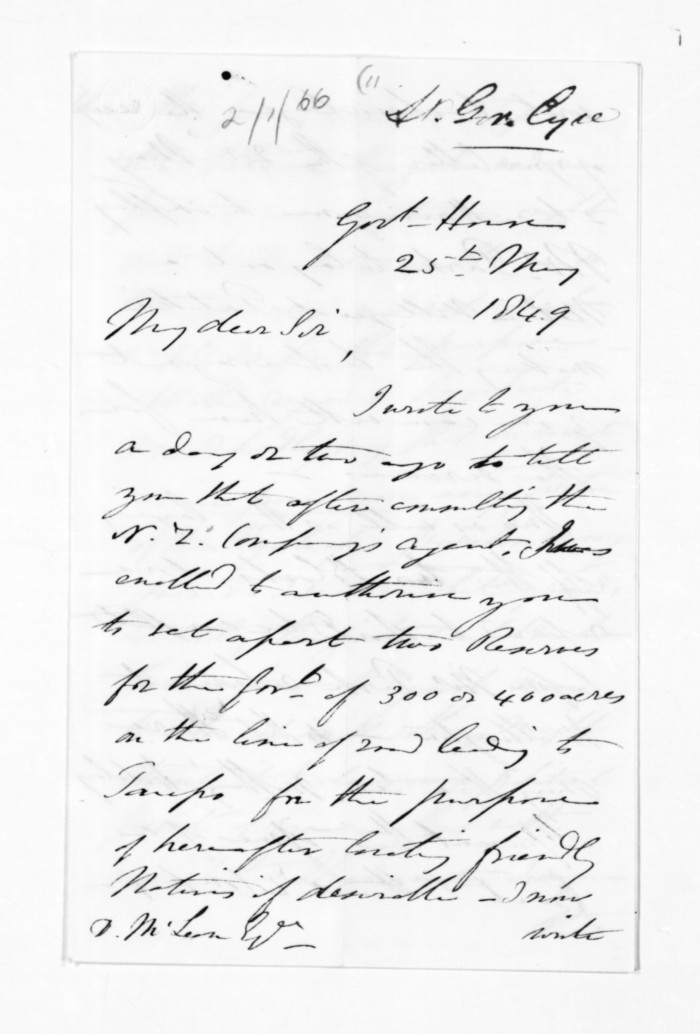 2/1/66
Lt. Gov. Eyre
Govt. House
25th May
1849
My dear Sir,
I wrote to you
a day or two ago to tell
you that after consulting the
N. Z. Company's agent, I was
enabled to authorise you
to set apart two Reserves
for the Govt. of 300 or 400 acres
on the line of road leading to
Taupo for the purpose
of hereafter locating friendly
Natives if desirable - I now
D. McLean Esqr.
write